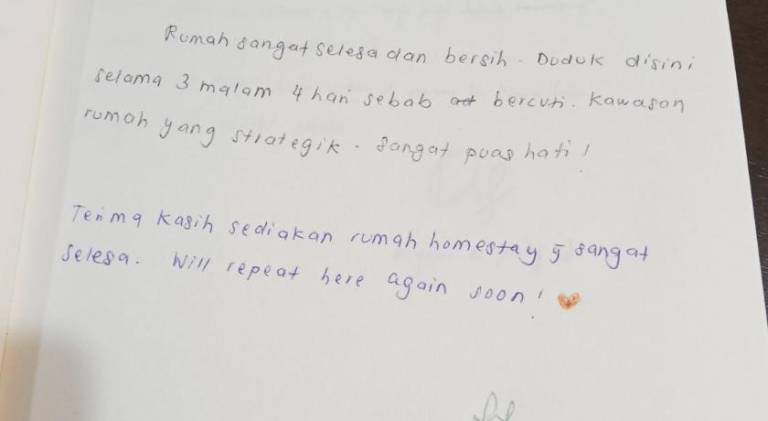 Rumah sangat selesa dan bersih. Duduk disini
selama 3 malam 4 hari sebab bercuti. Kawasan
rumah yang strategik. Sangat puas hati!
Terima kasih sediakan rumah homestay yg sangat
selesa. Will repeat here again soon!